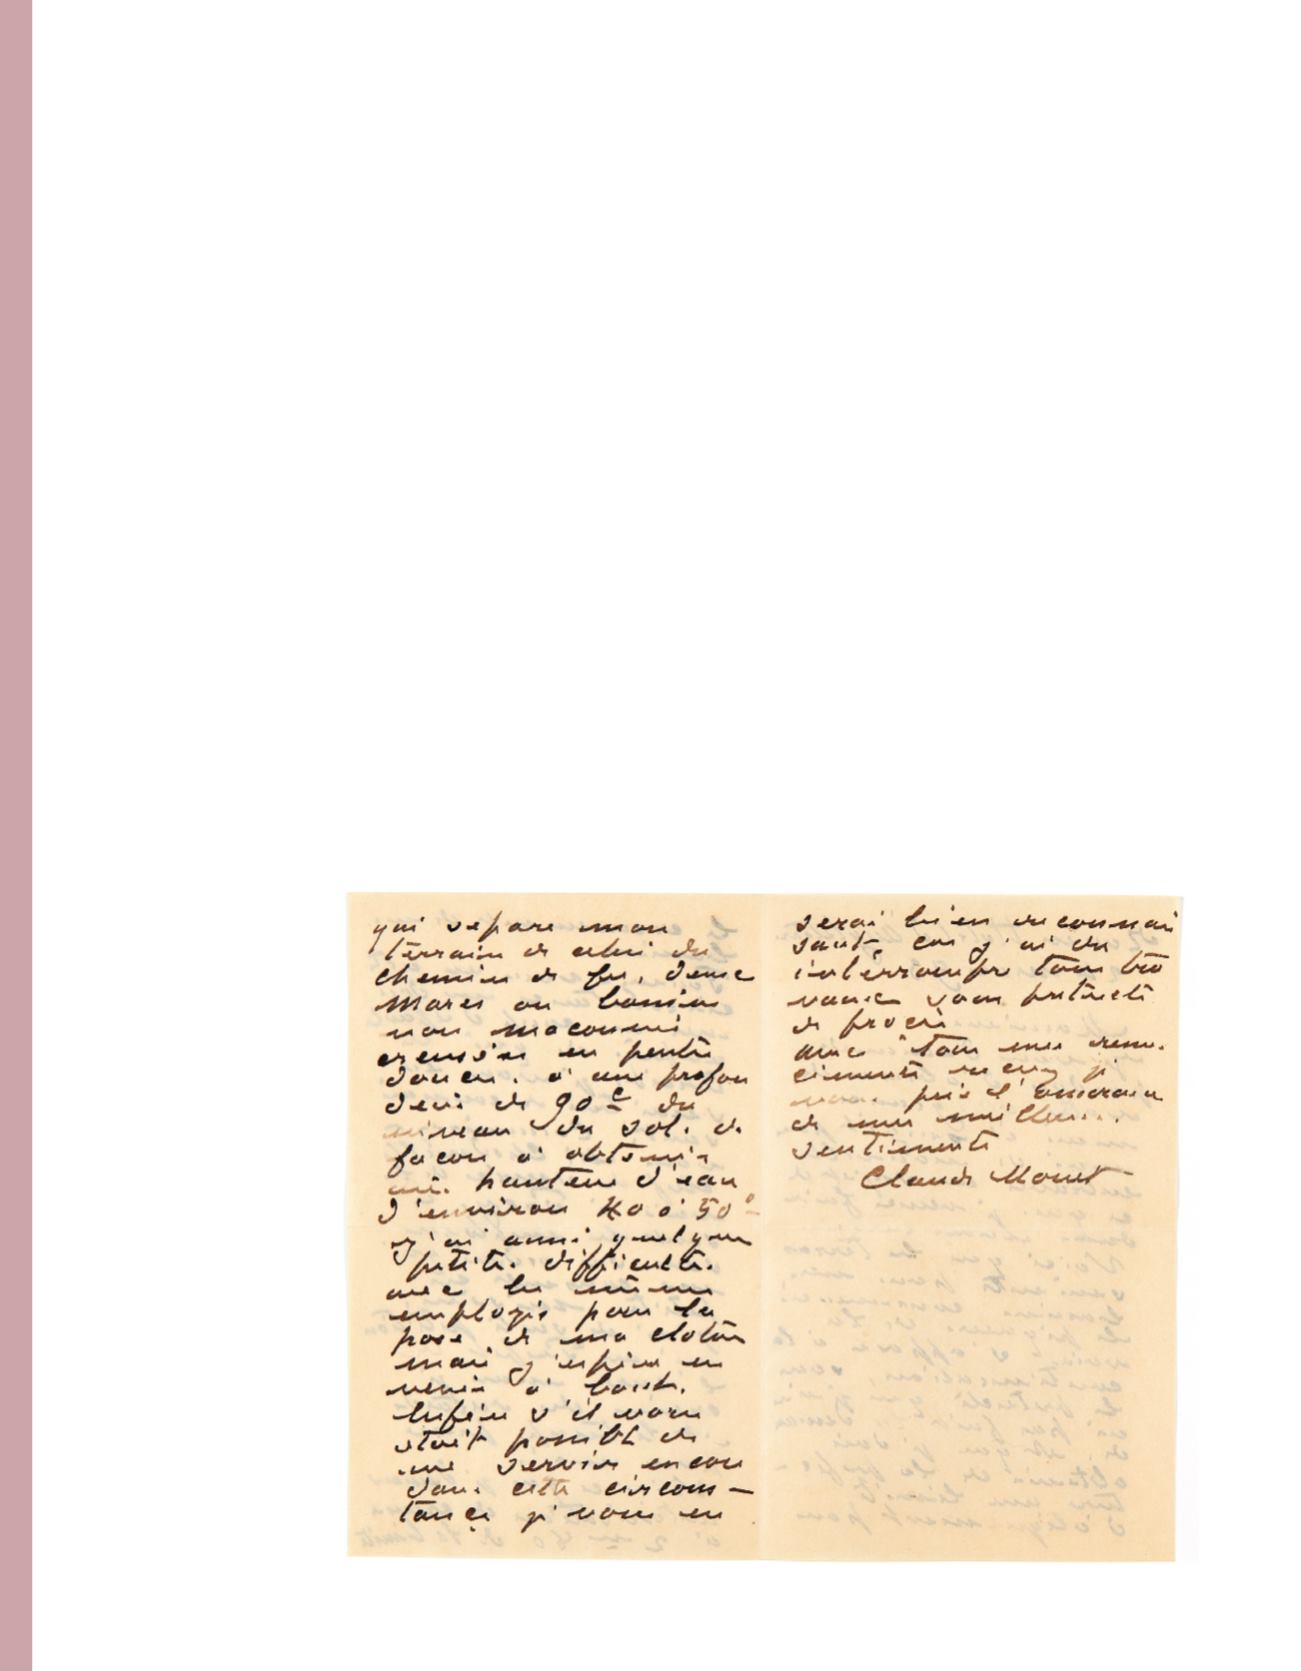 qui sépare mon
terrain de celui du
chemin de fer, deux
mares ou bassins
non maconnés
creusées en pente
douce, à une profon
deur de 90 c du
niveau du sol, de
facon à obtenir
une hauteur d'eau
d'environ 40 à 50 c
j'ai aussi quelques
petites difficultés
avec les mêmes
employés pour la
pose de ma cloture
mais j'espère en
venir à bout.
Enfin s'il vous
était possible de
me servir encore
dans cette circons-
tance je vous en
serai bien reconnais
sant, car j'ai du
interrompre tous tra
vaux
de procès
avec tous mes remer
ciements recevez je
vous prie l'assurance
de mes meilleurs
sentiments
Claude Monet